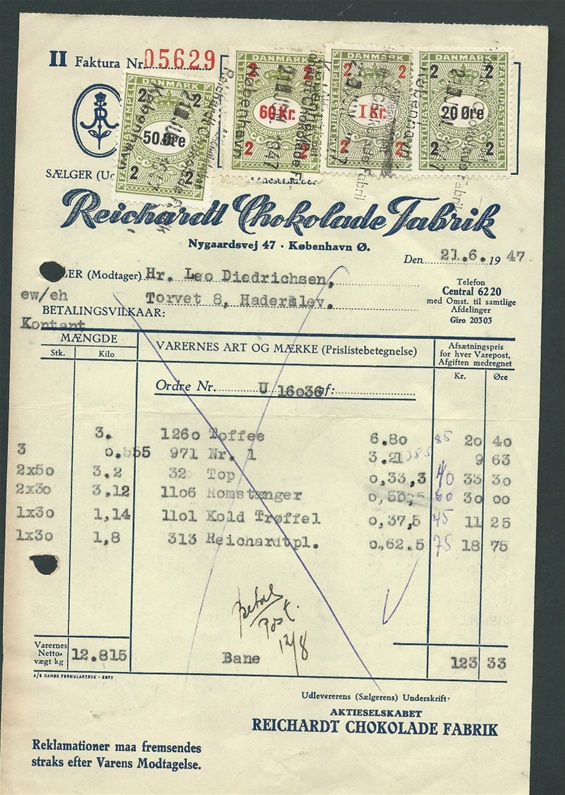 II Faktura Nr. 05629
DANMARK
DANMARK
DANMARK
DANMARK
2 2
2 2
2 2
2 2
50 Øre
60 Kr.
1 Kr.
20 Øre
2 2
2 2
2 2
2 2
SÆLGER (Ud
Reichardt Chokolade Fabrik
Nygaardsvej 47 · København Ø.
Den 21.6. 1947
GER (Modtager) Hr. Leo Diedrichsen,
Torvet 8, Haderslev.
Telefon
Central 6220
med Omst. til samtlige
Afdelinger
Giro 20303
ew/eh
BETALINGSVILKAAR:
Kontant
MÆNGDE
Stk. Kilo
VARERNES ART OG MÆRKE (Prislistebetegnelse)
Afsætningspris
for hver Varepost,
Afgiften medregnet
Kr. Øre
Ordre Nr. U 16036 af:
3. 1260 Toffee 6.80 85 20 40
3 0.555 971 Nr. 1 3.21 385 9 63
2x50 3.2 32 Top 0,33,3 40 33 30
2x30 3,12 1106 Romstænger 0,50,5 60 30 00
1x30 1,14 1101 Kold Trøffel 0,37,5 45 11 25
1x30 1,8 313 Reichardtpl. 0,62.5 75 18 75
betal
Post.
12/8
Varernes
Netto-
vægt kg 12.815 Bane 123 33
A/S DANSK FORMULARTRYK
Udlevererens (Sælgerens) Underskrift:
AKTIESELSKABET
REICHARDT CHOKOLADE FABRIK
Reklamationer maa fremsendes
straks efter Varens Modtagelse.